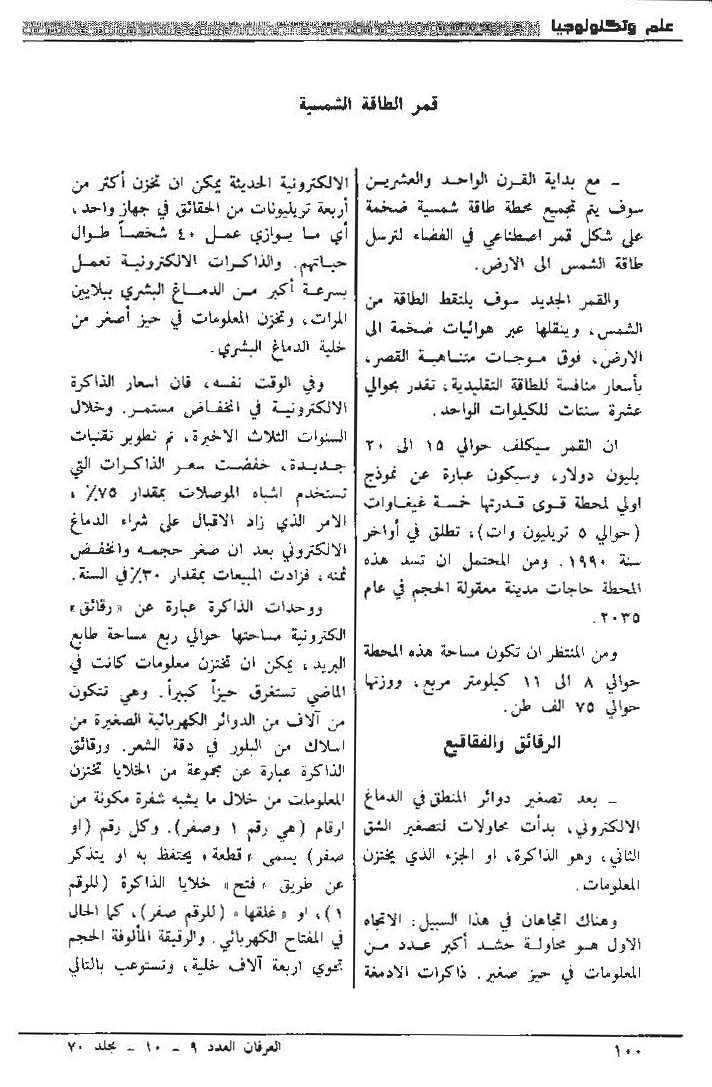 علم وتكنولوجيا
قمر الطاقة الشمسية
ـ مع بداية القرن الواحد والعشرين
سوف يتم تجميع محطة طاقة شمسية ضخمة
على شكل قمر اصطناعي في الفضاء لترسل
طاقة الشمس الى الارض.
والقمر الجديد سوف يلتقط الطاقة من
الشمس، وينقلها عبر هوائيات ضخمة الى
الارض، فوق موجات متناهية القصر،
بأسعار منافسة للطاقة التقليدية، تقدر بحوالي
عشرة سنتات للكيلوات الواحد.
ان القمر سيكلف حوالي ١٥ الى ٢٠
بليون دولار، وسيكون عبارة عن نموذج
اولي لمحطة قوى قدرتها خمسة غيغاوات
(حوالي ٥ تريليون وات)، تطلق في أواخر
سنة ١٩٩٠. ومن المحتمل ان تسد هذه
المحطة حاجات مدينة معقولة الحجم في عام
٢٠٣٥.
ومن المنتظر ان تكون مساحة هذه المحطة
حوالي ٨ الى ١١ كيلومتر مربع، ووزنها
حوالي ٧٥ الف طن.
الرقائق والفقاقيع
ـ بعد تصغير دوائر المنطق في الدماغ
الالكتروني، بدأت محاولات لتصغير الشق
الثاني، وهو الذاكرة، او الجزء الذي يختزن
المعلومات.
وهناك اتجاهان في هذا السبيل: الاتجاه
الاول هو محاولة حشد أكبر عدد من
المعلومات في حيز صغير. ذاكرات الادمغة
الالكترونية الحديثة يمكن ان تخزن أكثر من
أربعة تريليونات من الحقائق في جهاز واحد،
أي ما يوازي عمل ٤٠ شخصاً طوال
حياتهم. والذاكرات الالكترونية تعمل
بسرعة أكبر من الدماغ البشري ببلايين
المرات، وتخزن المعلومات في حيز أصغر من
خلية الدماغ البشري.
وفي الوقت نفسه، فان اسعار الذاكرة
الالكترونية في انخفاض مستمر. وخلال
السنوات الثلاث الاخيرة، تم تطوير تقنيات
جديدة، خفضت سعر الذاكرات التي
تستخدم اشباه الموصلات بمقدار ٧٥٪،
الامر الذي زاد الاقبال على شراء الدماغ
الالكتروني بعد ان صغر حجمه وانخفض
ثمنه، فزادت المبيعات بمقدار ٣٠٪ في السنة.
ووحدات الذاكرة عبارة عن «رقائق»
الكترونية مساحتها حوالي ربع مساحة طابع
البريد، يمكن ان تختزن معلومات كانت في
الماضي تستغرق حيزاً كبيراً. وهي تتكون
من آلاف من الدوائر الكهربائية الصغيرة من
اسلاك من البلور في دقة الشعر. ورقائق
الذاكرة عبارة عن مجموعة من الخلايا تختزن
المعلومات من خلال ما يشبه شفرة مكونة من
ارقام (هي رقم ١ وصفر). وكل رقم (او
صفر) يسمى «قطعة» يحتفظ به او يتذكر
عن طريق «فتح» خلايا الذاكرة (للرقم
١)، او «غلقها» (للرقم صفر)، كما الحال
في المفتاح الكهربائي. والرقيقة المألوفة الحجم
تحوي اربعة آلاف خلية، وتستوعب بالتالي
١٠٠
العرفان العدد ٩ ـ ١٠ ـ مجلد ٧٠